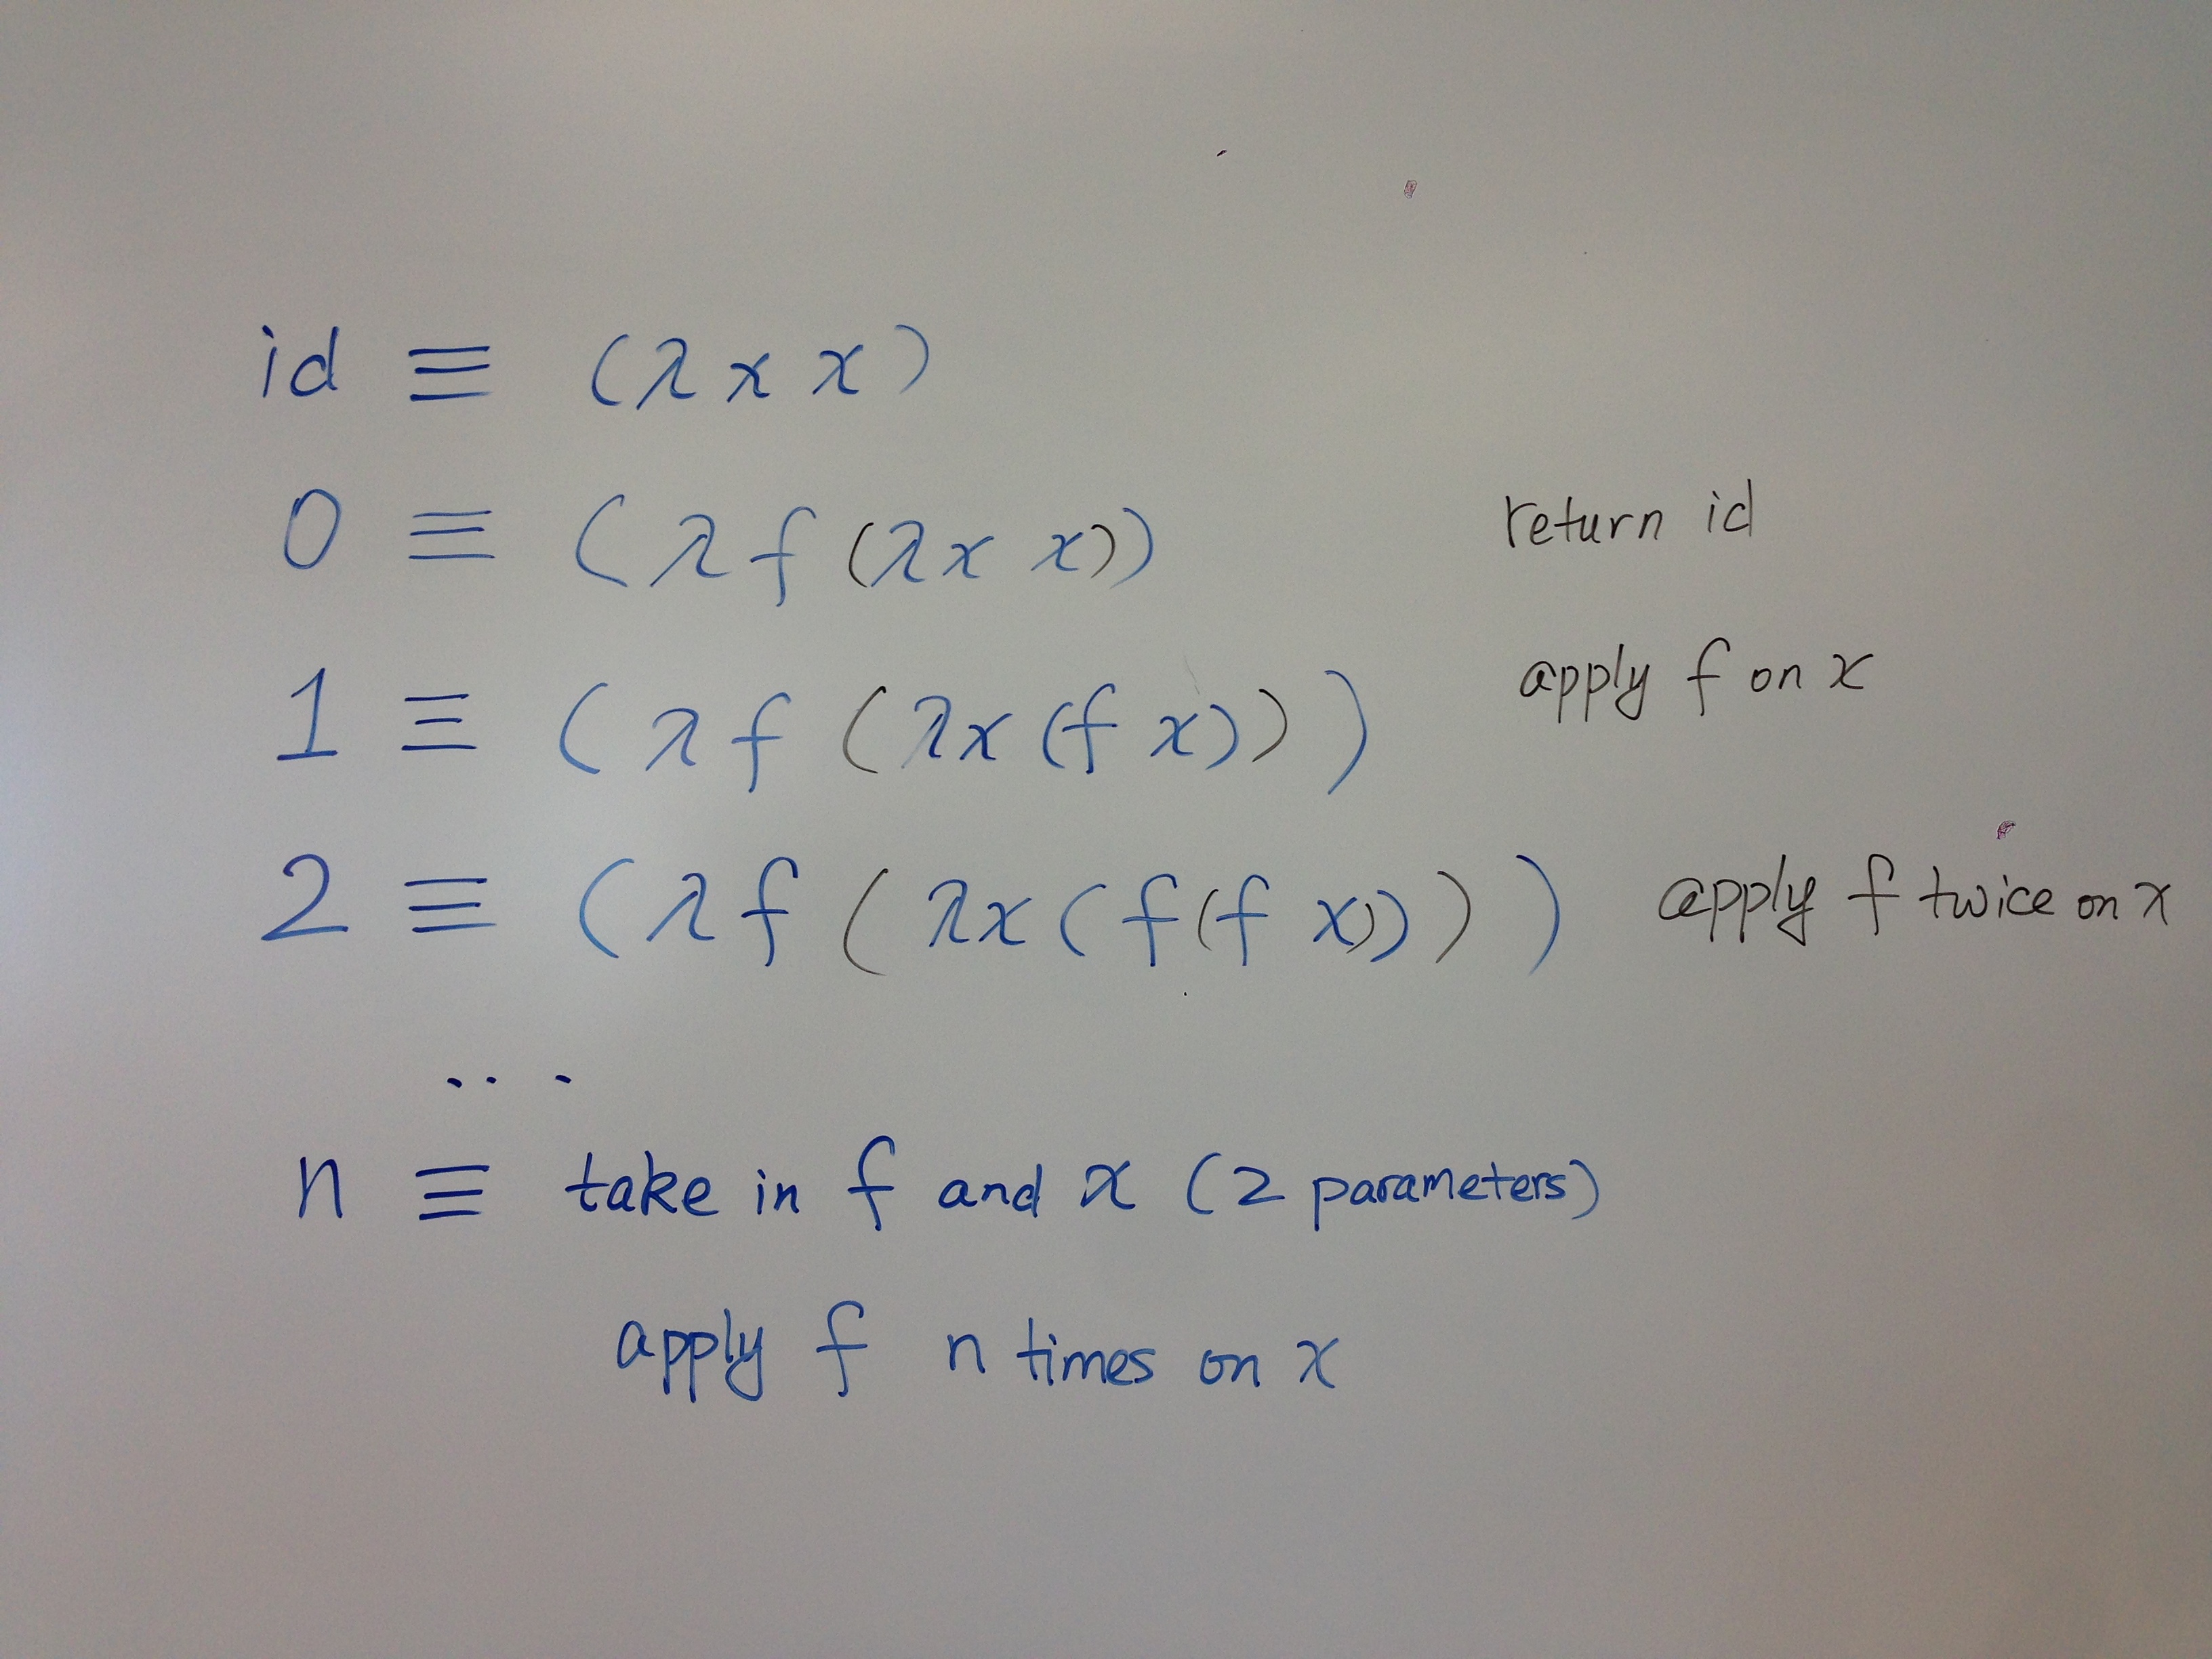 id ≡ (λ x x)
0 ≡ (λ f (λ x x)) return id
1 ≡ (λ f (λx (f x))) apply f on x
2 ≡ (λ f (λx (f (f x)))) apply f twice on x
...
n ≡ take in f and x (2 parameters)
apply f n times on x